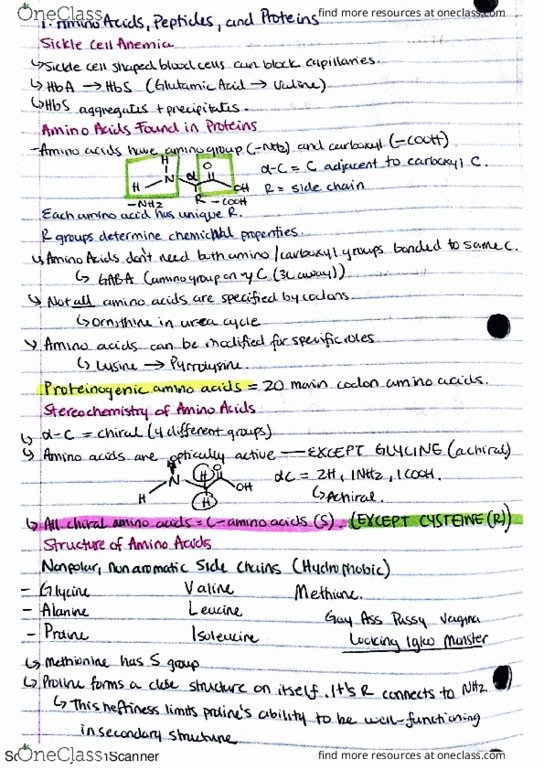 OneClass
find more resources at oneclass.com
1. Amino Acids, Peptides, and Proteins
Sickle Cell Anemia
↳ Sickle cell shaped blood cells can block capillaries.
↳ HbA → HbS (Glutamic Acid → Valine)
↳ HbS aggregates + precipitates.
Amino Acids Found in Proteins
- Amino acids have amino group (-NH2) and carboxyl (-COOH)
H
O
α-C = C adjacent to carboxyl C.
H N α OH
R = side chain
-NH2 R -COOH
Each amino acid has unique R.
R groups determine chemical properties.
↳ Amino Acids don't need both amino/carboxyl groups bonded to same C.
↳ GABA (amino group on γ C (3C away))
↳ Not all amino acids are specified by codons.
↳ Ornithine in urea cycle
↳ Amino acids can be modified for specific roles
↳ Lysine → Pyrrolysine.
Proteinogenic amino acids = 20 main codon amino acids.
Stereochemistry of Amino Acids
↳ α-C = chiral (4 different groups)
↳ Amino acids are optically active — EXCEPT GLYCINE (achiral)
H
N H O
OH
αC = 2H, 1NH2, 1COOH.
H
H
↳ Achiral.
↳ All chiral amino acids = L-amino acids (S). (EXCEPT CYSTEINE (R))
Structure of Amino Acids
Nonpolar, nonaromatic Side Chains (Hydrophobic)
- Glycine Valine Methione.
- Alanine Leucine Gay Ass Pussy Vagina
- Proline Isoleucine Looking Igloo Munster
↳ methionine has S group
↳ Proline forms a close structure on itself. It's R connects to NH2.
↳ This heftiness limits proline's ability to be well-functioning
in secondary structure
OneClass
Scanner
find more resources at oneclass.com